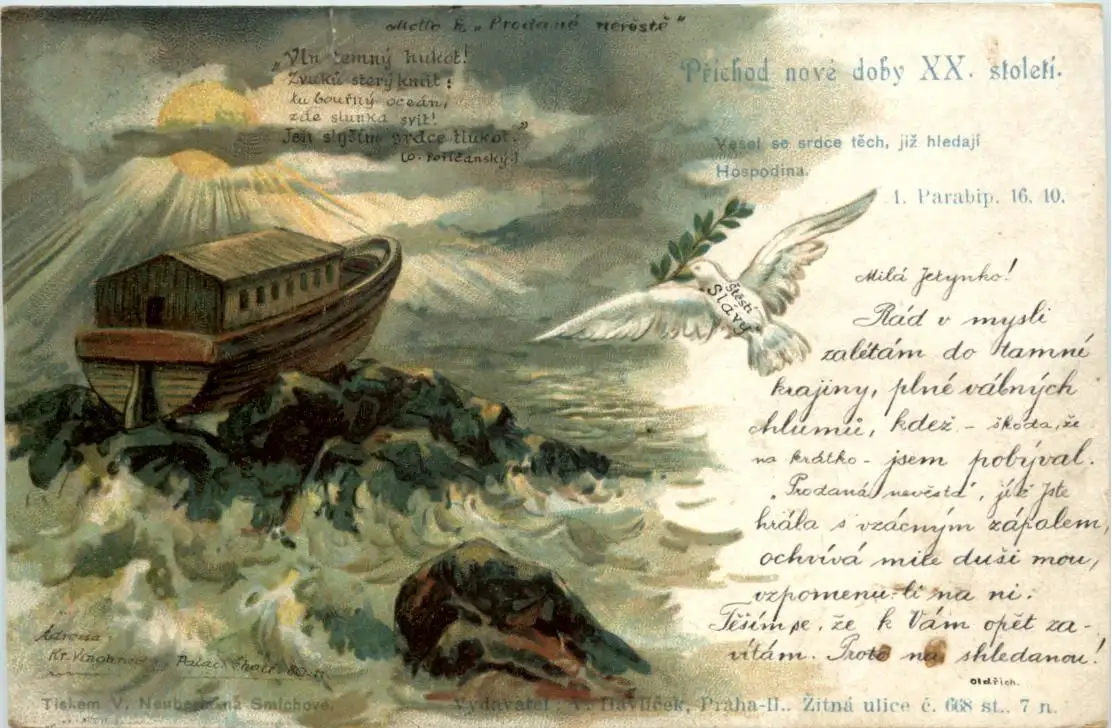 Motto k „Prodané nevěstě“
„Vln temný hukot!
Zvuků sterý kmit:
tu bouřný oceán,
zde slunka svit!
Jen slyším srdce tlukot.“
(O. Poříčanský.)
Příchod nové doby XX. století.
Vesel se srdce těch, již hledají
Hospodina.
1. Paralip. 16, 10.
štěstí
Slávy
Milá Jetynko!
Rád v mysli
zalétám do tamné
krajiny, plné vábných
chlumů, kdež – škoda, že
na krátko – jsem pobýval.
„Prodaná nevěsta“, již jste
hrála s vzácným zápalem,
ochvívá mile duši mou,
vzpomenu-li na ni.
Těším se, že k Vám opět za-
vítám. Proto na shledanou!
Oldřich.
Adressa:
Kr. Vinohrady
Tiskem V. Neuberta na Smíchově.
Vydavatel: V. Havlíček, Praha-II., Žitná ulice č. 668 st., 7 n.